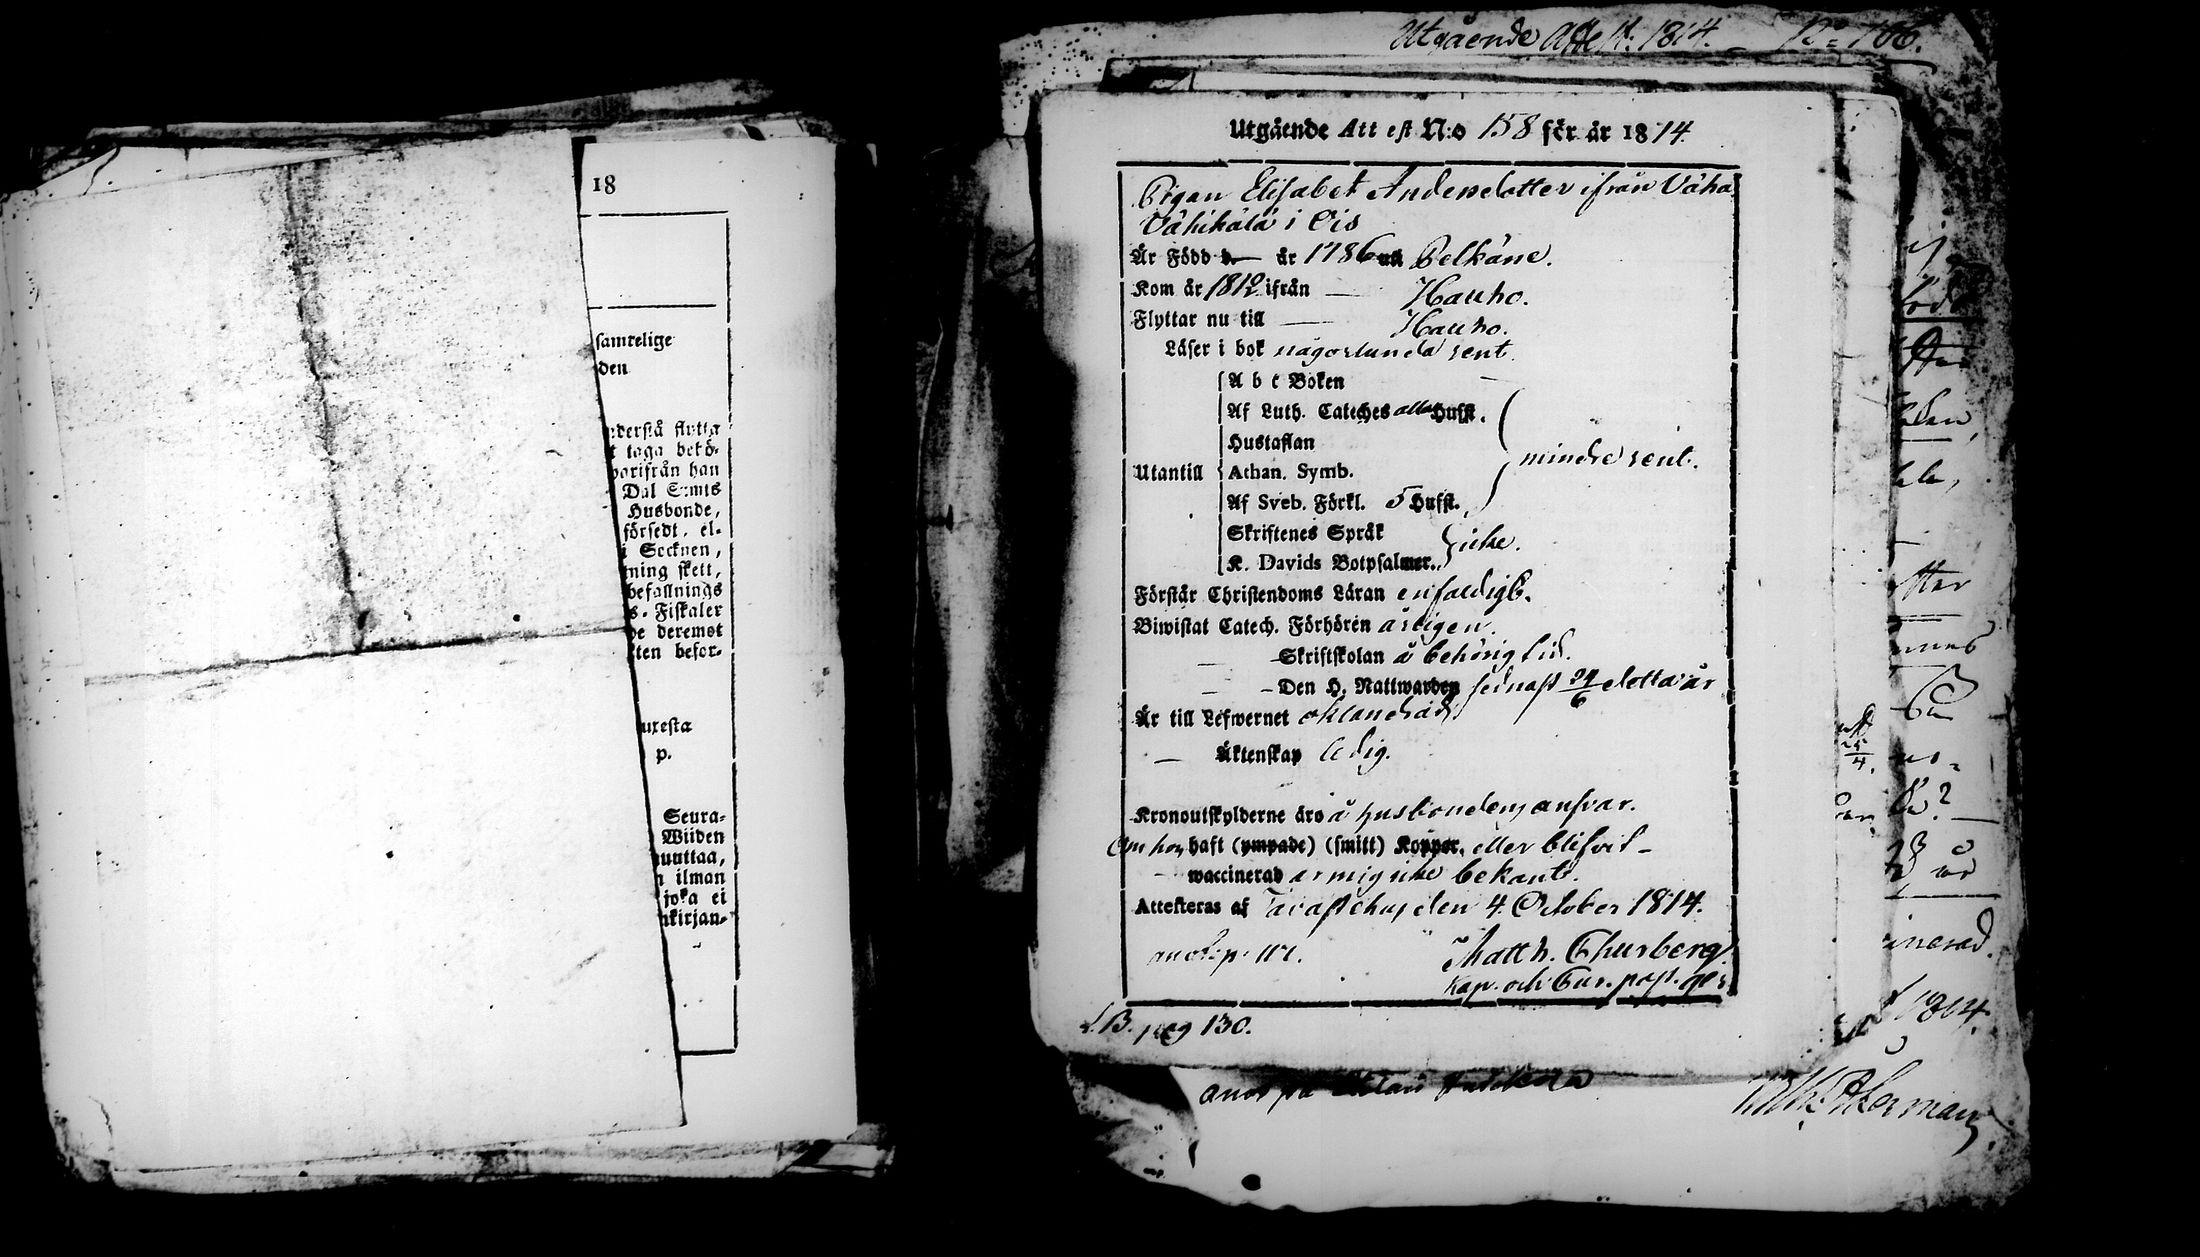 18
samtelige
den
derstå flytta
t taga bekö-
varifrån han
Dal Semts
Husbonde,
försedt, el-
i Socknen,
ning skett,
befallnings
s- Fiskaler
de deremot
ten befor-
uxesta
p.
Seura-
Wiiden
uuttaa,
n ilman
joka ei
nkirjan-
Utgående Attest: 1814. - No 106.
Utgående Attest N:o 158 för år 1814.
Pigan Elisabet Andersdotter ifrån Vähä
Vähikälä i Ois
Är Född år 1786 uti Pelkäne.
Kom år 1812 ifrån — Hauho.
Flyttar nu till — Hauho.
Läser i bok någorlunda rent
Abc Boken
Af Luth. Cateches alla Hufst.
Hustaflan
Utantill Athan. Symb. mindre rent.
Af Sveb. Förkl. 5 Hufst.
Skriftenes Språk
K. Davids Botpsalmer. icke.
Förstår Christendoms Läran enfaldigt.
Biwistat Catech. Förhören årligen.
— Skriftskolan å behörig tid.
— Den H. Nattwarden senast 24/6 detta år
Är till Lefwernet oklandrad
— Äktenskap ledig.
Kronoutskylderne äro å husbondens ansvar.
Om hon haft (ympade) (smitt) Koppor, eller blifvit -
waccinerad är mig icke bekant.
Attesteras af Tavastehus den 4 October 1814.
Matth. Thurberg
Kap. och Cur. past. ger
L.B. pag 130.
anor på
Åkerman
sinerad.
1814